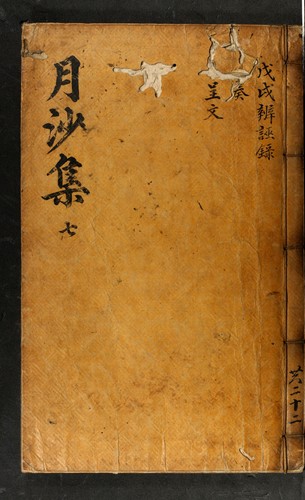 月沙集
七
戊戌辨誣録
奏
呈文
共二十二